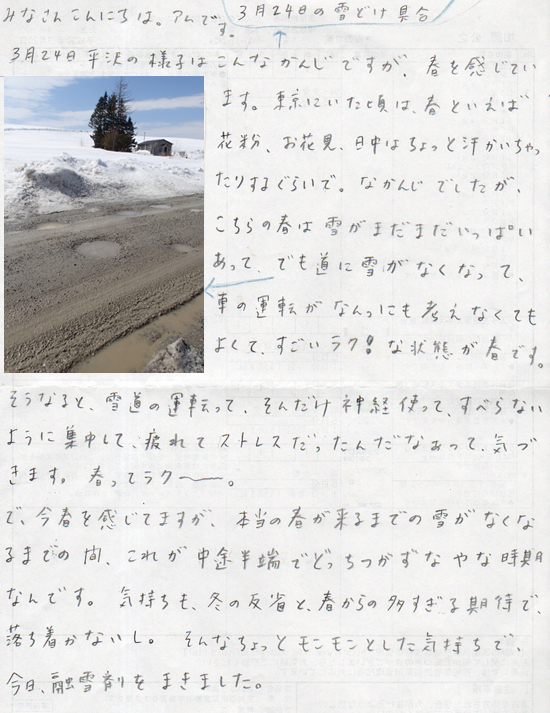 みなさんこんにちは。アムです。
3月24日の雪どけ具合
3月24日平沢の様子はこんなかんじですが、春を感じてい
ます。東京にいた頃は、春といえば
花粉、お花見、日中はちょっと汗かいちゃっ
たりするぐらいで。なかんじでしたが、
こちらの春は雪がまだまだいっぱい
あって、でも道に雪がなくなって、
車の運転がなんっにも考えなくても
よくて、すごいラク!な状態が春です。
そうなると、雪道の運転って、そんだけ神経使って、すべらない
ように集中して、疲れてストレスだったんだなあって、気づ
きます。春ってラク〜〜。
で、今春を感じてますが、本当の春が来るまでの雪がなくな
るまでの間、これが中途半端でどっちつかずなやな時期
なんです。気持ちも、冬の反省と、春からの多すぎる期待で、
落ち着かないし。そんなちょっとモンモンとした気持ちで、
今日、融雪剤をまきました。